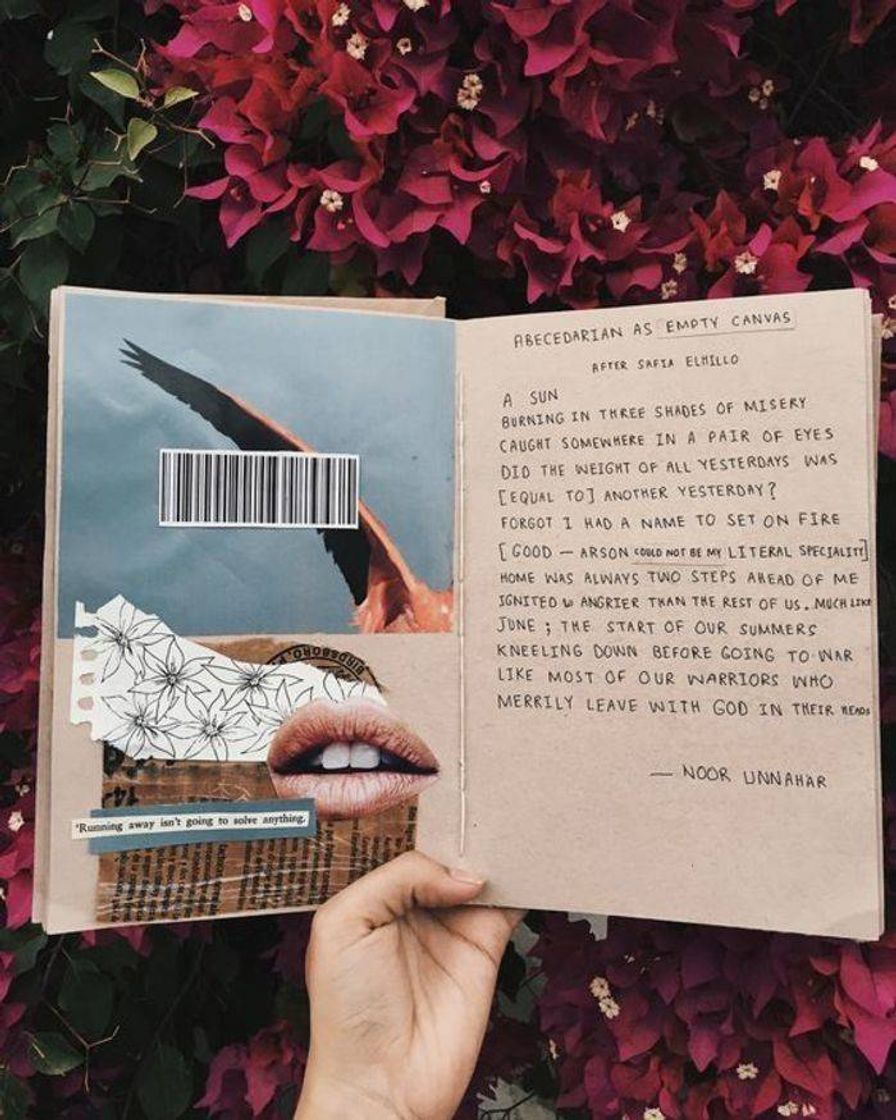 BIRDSBORO, P
'Running away isn't going to solve anything.
ABECEDARIAN AS EMPTY CANVAS
AFTER SAFIA ELHILLO
A SUN
BURNING IN THREE SHADES OF MISERY
CAUGHT SOMEWHERE IN A PAIR OF EYES
DID THE WEIGHT OF ALL YESTERDAYS WAS
[EQUAL TO] ANOTHER YESTERDAY?
FORGOT I HAD A NAME TO SET ON FIRE
[GOOD — ARSON COULD NOT BE MY LITERAL SPECIALITY]
HOME WAS ALWAYS TWO STEPS AHEAD OF ME
IGNITED & ANGRIER THAN THE REST OF US. MUCH LIKE
JUNE ; THE START OF OUR SUMMERS
KNEELING DOWN BEFORE GOING TO WAR
LIKE MOST OF OUR WARRIORS WHO
MERRILY LEAVE WITH GOD IN THEIR HEADS
— NOOR UNNAHAR